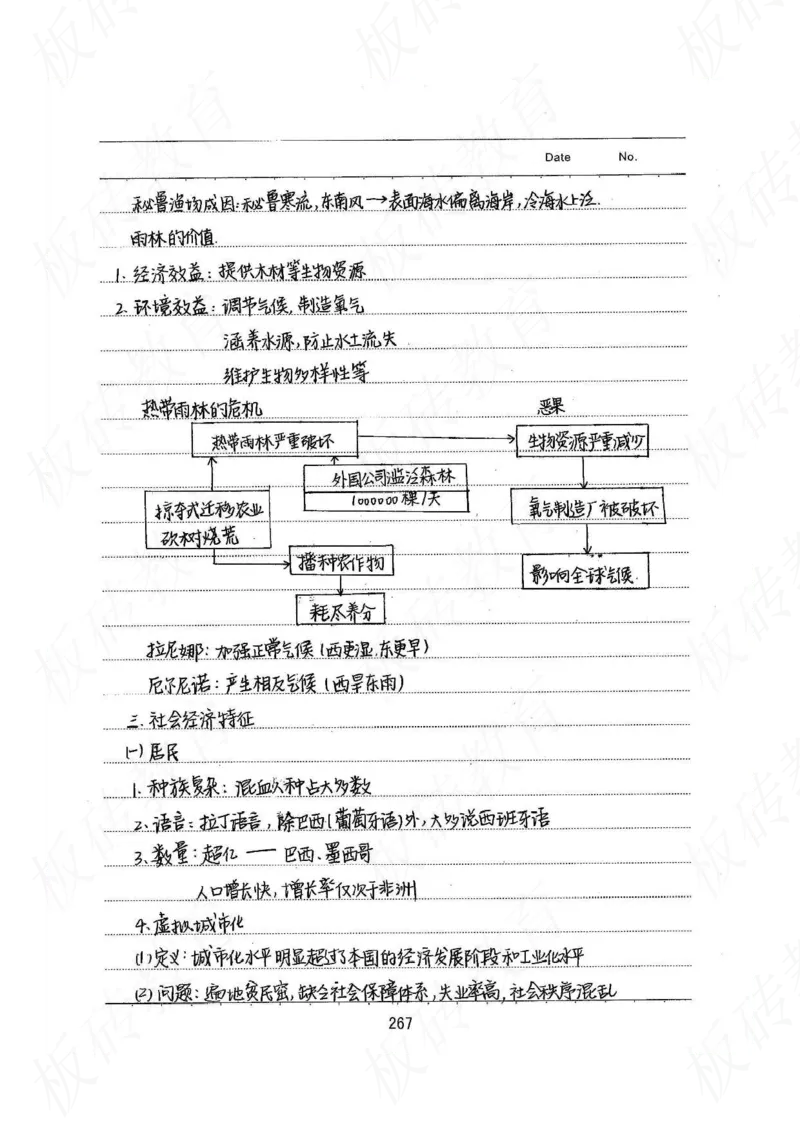 Date No.
秘鲁渔场成因:秘鲁寒流,东南风→表面海水偏离海岸,冷海水上泛.
雨林的价值.
1. 经济效益:提供木材等生物资源
2. 环境效益:调节气候,制造氧气
涵养水源,防止水土流失
维护生物多样性等
热带雨林的危机 恶果
热带雨林严重破坏 生物资源严重减少
外国公司滥泛森林
1000000棵/天
掠夺式迁移农业
砍树烧荒
氧气制造厂被破坏
播种农作物
影响全球气候
耗尽养分
拉尼娜:加强正常气候(西更湿,东更旱)
厄尔尼诺:产生相反气候(西旱东雨)
三.社会经济特征
(一)居民
1. 种族复杂:混血人种占大多数
2. 语言:拉丁语言,除巴西(葡萄牙语)外,大多说西班牙语
3. 数量:超亿——巴西、墨西哥
人口增长快,增长率仅次于非洲
4. 虚拟城市化
(1)定义:城市化水平明显超过了本国的经济发展阶段和工业化水平
(2)问题:遍地贫民窑,缺乏社会保障体系,失业率高,社会秩序混乱
267
板砖教育